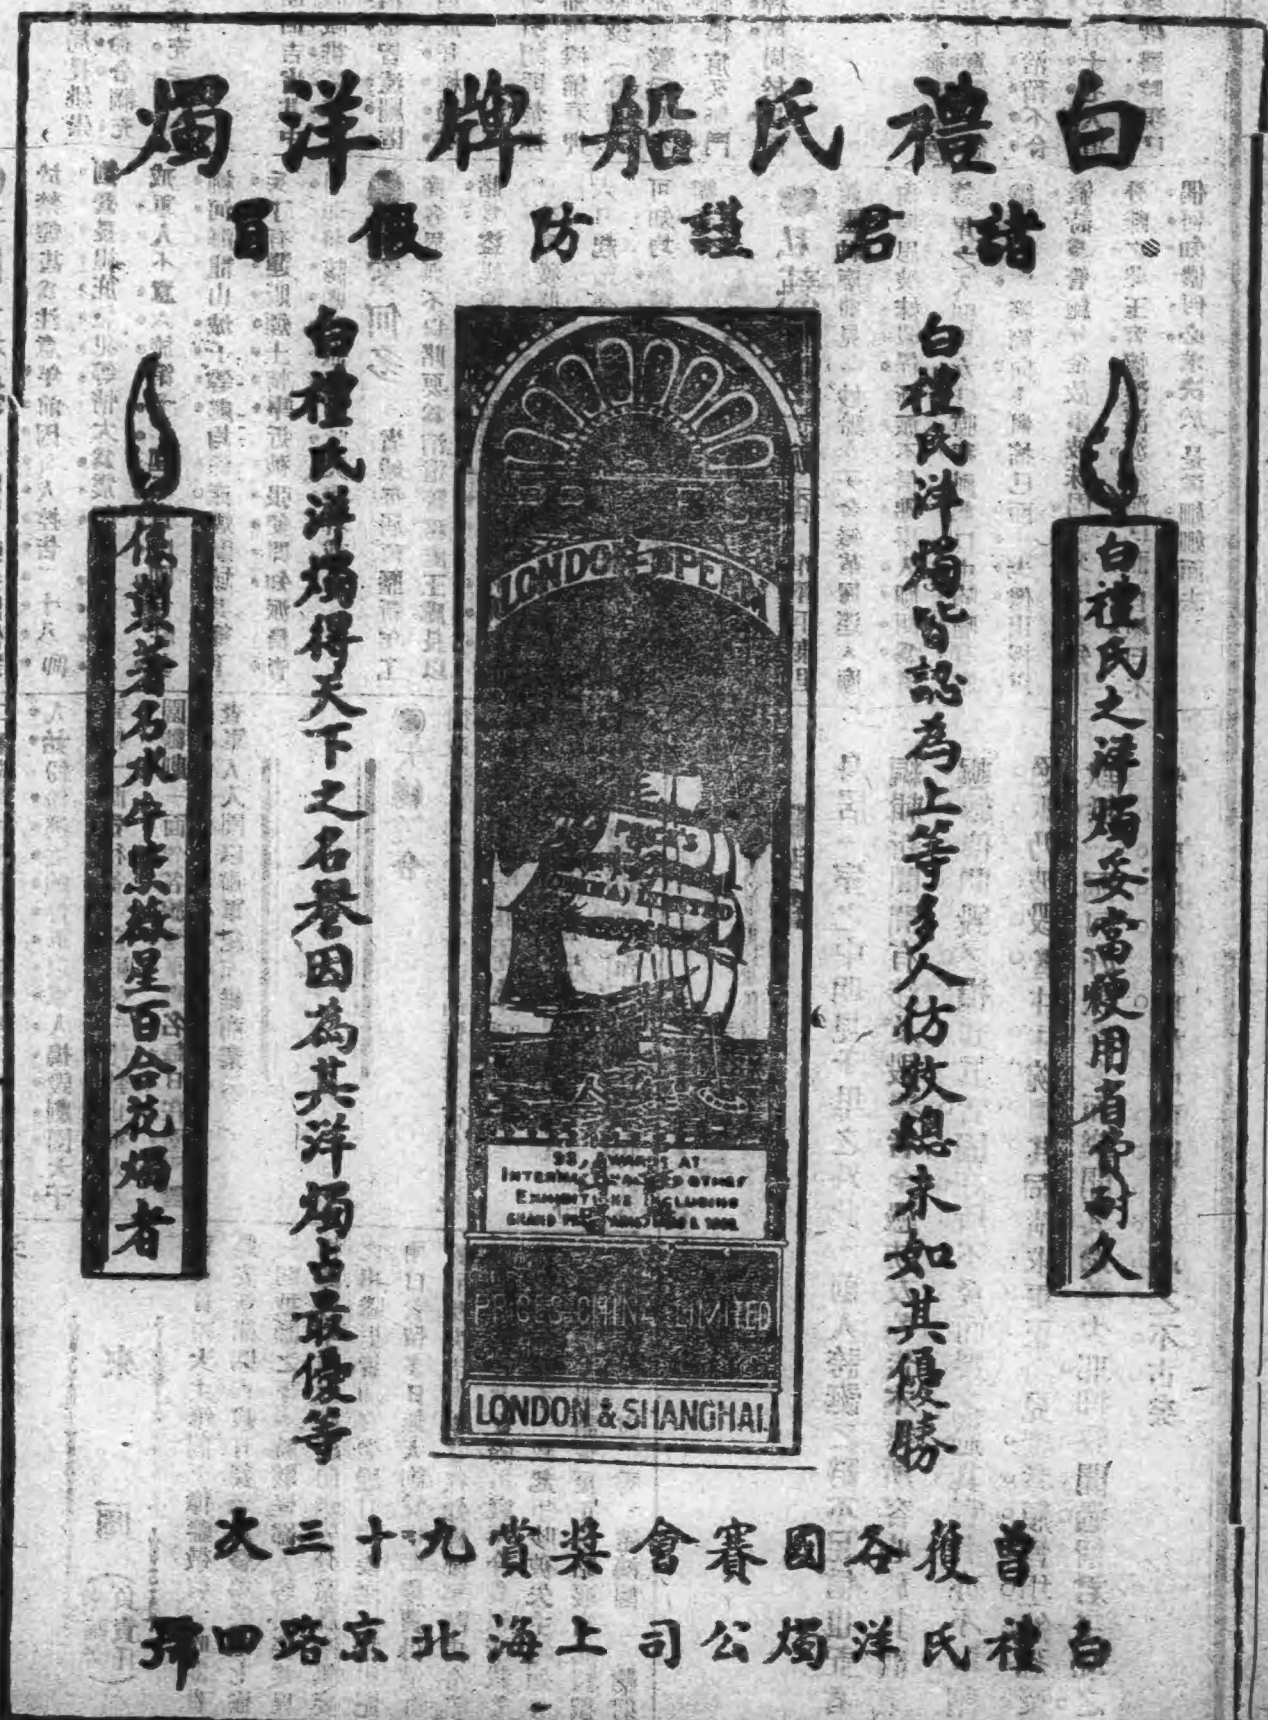 白禮氏船牌洋燭
諸君謹防假冒
白禮氏之洋燭妥當硬用者貪耐久
白禮氏洋燭皆認為上等多人彷效總未如其優勝
LONDON SPERM
PRICE'S
(CHINA) LIMITED
93, AWARDS AT
INTERNATIONAL & OTHER
EXHIBITIONS INCLUDING
GRAND PRIX
PRICE'S CHINA LIMITED
LONDON & SHANGHAI.
白禮氏洋燭得天下之名譽因為其洋燭占最優等
係製著名水牛紫薇星百合花燭者
曾獲各國賽會獎賞九十三次
白禮氏洋燭公司上海北京路四號